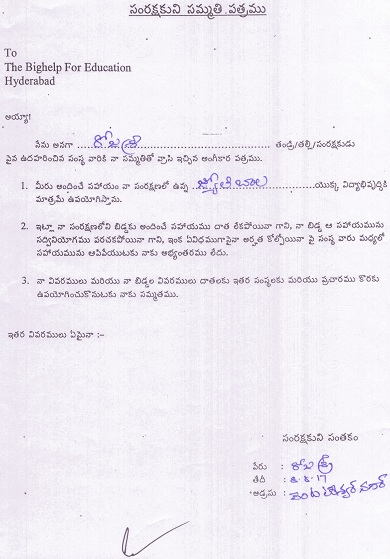 సంరక్షకుని సమ్మతి పత్రము
To
The Bighelp For Education
Hyderabad
అయ్యా!
నేను అనగా రోజశ్రీ తండ్రి/తల్లి/సంరక్షకుడు
పైన ఉదహరించిన సంస్థ వారికి నా సమ్మతితో వ్రాసి ఇచ్చిన అంగీకార పత్రము.
1. మీరు అందించే సహాయం నా సంరక్షణలో ఉన్న జ్యోతి బాల యొక్క విద్యాభివృద్ధికి
మాత్రమే ఉపయోగిస్తాను.
2. ఇట్లా నా సంరక్షణలోని బిడ్డకు అందించే సహాయము దాత లేకపోయినా గాని, నా బిడ్డ ఆ సహాయమును
సద్వినియోగము పరచకపోయినా గాని, ఇంక ఏవిధముగానైనా అర్హత కోల్పోయినా పై సంస్థ వారు మధ్యలో
సహాయమును ఆపివేయుటకు నాకు అభ్యంతరము లేదు.
3. నా వివరములు మరియు నా బిడ్డల వివరములు దాతలకు ఇతర సంస్థలకు మరియు ప్రచారము కొరకు
ఉపయోగించుకొనుటకు నాకు సమ్మతము.
ఇతర వివరములు ఏమైనా :-
సంరక్షకుని సంతకం
పేరు : రోజశ్రీ
తేదీ : 6.6.17
అడ్రసు :